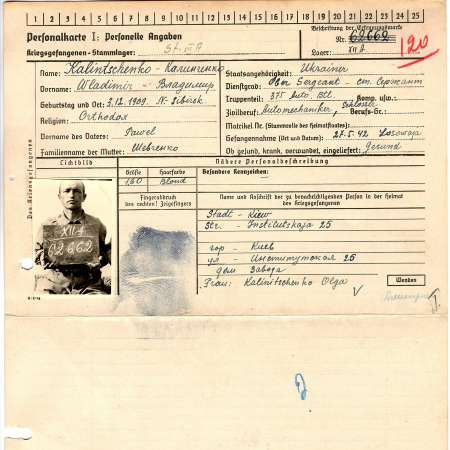 1 2 3 4 5 6 7 8 9 10 11 12 13 14 15 16 17 18 19 20 21 22 23 24 25
Personalkarte I: Personelle Angaben
Kriegsgefangenen-Stammlager: St. XII A
Beschriftung der Erkennungsmarke
Nr. 62662
Lager: XII A.
120
Des Kriegsgefangenen
Name: Kalintschenko - Калинченко
Vorname: Wladimir - Владимир
Geburtstag und Ort: 3.12.1909. N. Sibirsk
Religion: Orthodox
Vorname des Vaters: Pawel
Familienname der Mutter: Wewrenko
Staatsangehörigkeit: Ukrainer
Dienstgrad: Ober Sergeant - ст. Сержант
Truppenteil: 375 Auto Btl. Komp. usw.:
Zivilberuf: Automechaniker, Schlosser Berufs-Gr.:
Matrikel Nr. (Stammrolle des Heimatstaates):
Gefangennahme (Ort und Datum): 27.5.42 Losowaja
Ob gesund, krank, verwundet, eingeliefert: Gesund
Lichtbild
Nähere Personalbeschreibung
Größe Haarfarbe Besondere Kennzeichen:
1,60 Blond
Fingerabdruck
des rechten! Zeigefingers
Name und Anschrift der zu benachrichtigenden Person in der Heimat
des Kriegsgefangenen
XII A
62662
Stadt - Kiew
Str. - Institutskaja 25
гор - Киев
ул - Институтская 25
дом Завода
Frau: Kalintschenko Olga
Wenden